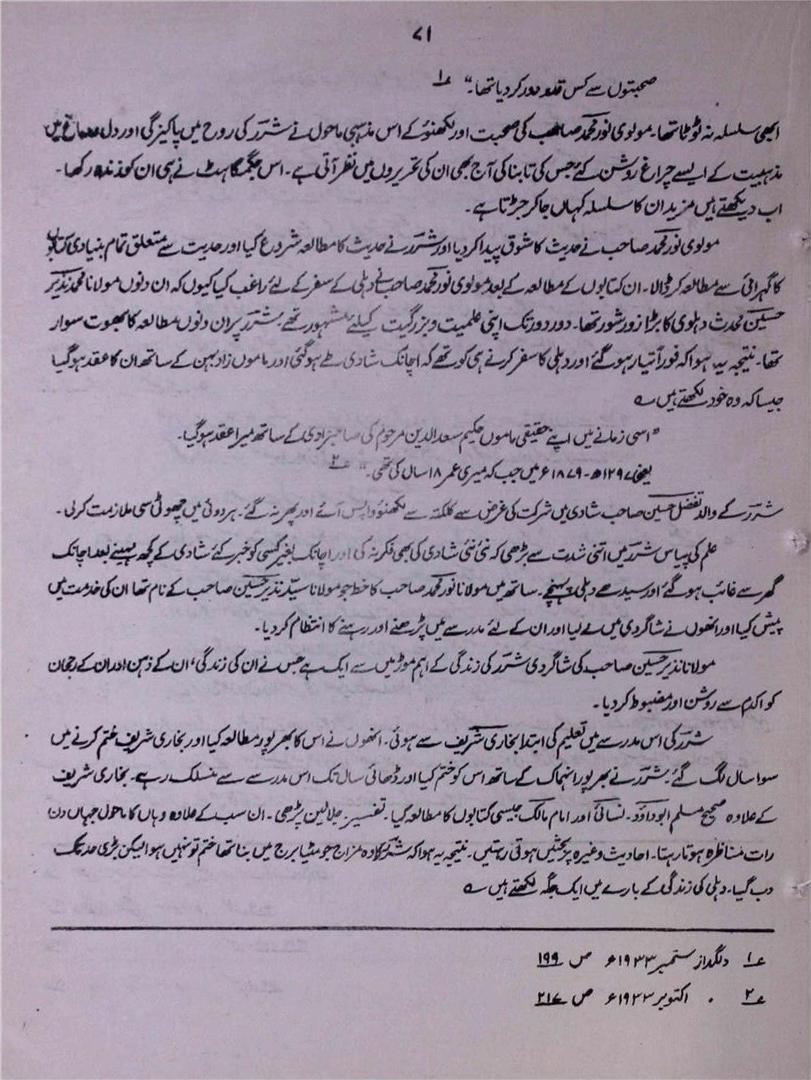 ۷۱
صحبتوں سے کس قدر دور کر دیا تھا۔" ۱؎
ابھی سلسلہ نہ ٹوٹا تھا۔ مولوی نور محمد صاحب کی صحبت اور لکھنؤ کے اس مذہبی ماحول نے شرر کی روح میں پاکیزگی اور دل دماغ میں
مذہبیت کے ایسے چراغ روشن کئے جس کی تابناکی آج بھی ان کی تحریروں میں نظر آتی ہے۔ اس جگمگاہٹ نے ہی ان کو زندہ رکھا۔
اب دیکھتے ہیں مزید ان کا سلسلہ کہاں جا کر جڑتا ہے۔
مولوی نور محمد صاحب نے حدیث کا شوق پیدا کر دیا اور شرر نے حدیث کا مطالعہ شروع کیا اور حدیث سے متعلق تمام بنیادی کتابوں
کا گہرائی سے مطالعہ کر ڈالا۔ ان کتابوں کے مطالعہ کے بعد مولوی نور محمد صاحب نے دہلی کے سفر کے لئے راغب کیا کیوں کہ ان دنوں مولانا محمد نذیر
حسین محدث دہلوی کا بڑا زور شور تھا۔ دور دور تک اپنی علمیت و بزرگیت کیلئے مشہور تھے شرر پر ان دنوں مطالعہ کا بھوت سوار
تھا۔ نتیجہ یہ ہوا کہ فوراً تیار ہو گئے اور دہلی کا سفر کرنے ہی کو تھے کہ اچانک شادی طے ہو گئی اور ماموں زاد بہن کے ساتھ ان کا عقد ہو گیا
جیسا کہ وہ خود لکھتے ہیں ؎
"اسی زمانے میں اپنے حقیقی ماموں حکیم سعد الدین مرحوم کی صاحبزادی کے ساتھ میرا عقد ہو گیا۔
یعنی ۱۲۹۷ھ۔ ۱۸۷۹ء میں جب کہ میری عمر ۱۸ سال کی تھی۔" ۲؎
شرر کے والد تفضل حسین صاحب شادی میں شرکت کی غرض سے کلکتہ سے لکھنؤ واپس آئے اور پھر نہ گئے۔ ہردوئی میں چھوٹی سی ملازمت کر لی۔
علم کی پیاس شرر میں اتنی شدت سے بڑھی کہ نئی نئی شادی کی بھی فکر نہ کی اور اچانک بغیر کسی کو خبر کئے شادی کے کچھ مہینے بعد اچانک
گھر سے غائب ہو گئے اور سیدھے دہلی پہنچے۔ ساتھ میں مولانا نور محمد صاحب کا خط جو مولانا سید نذیر حسین صاحب کے نام تھا ان کی خدمت میں
پیش کیا اور انھوں نے شاگردی میں لے لیا اور ان کے لئے مدرسے میں پڑھنے اور رہنے کا انتظام کر دیا۔
مولانا نذیر حسین صاحب کی شاگردی شرر کی زندگی کے اہم موڑ میں سے ایک ہے جس نے ان کی زندگی، ان کے ذہن اور ان کے رجحان
کو اکدم سے روشن اور مضبوط کر دیا۔
شرر کی اس مدرسے میں تعلیم کی ابتدا بخاری شریف سے ہوئی۔ انھوں نے اس کا بھرپور مطالعہ کیا اور بخاری شریف ختم کرنے میں
سوا سال لگ گئے شرر نے بھرپور انہماک کے ساتھ اس کو ختم کیا اور ڈھائی سال تک اس مدرسے سے منسلک رہے۔ بخاری شریف
کے علاوہ صحیح مسلم ابو داؤد۔ نسائی اور امام مالک جیسی کتابوں کا مطالعہ کیا۔ تفسیر جلالین پڑھی۔ ان سب کے علاوہ وہاں کا ماحول جہاں دن
رات مناظرہ ہوتا رہتا۔ احادیث وغیرہ پر بحثیں ہوتی رہتیں۔ نتیجہ یہ ہوا کہ شرر کا وہ مزاج جو مٹیا برج میں بنا تھا ختم تو نہیں ہوا لیکن بڑی حد تک
دب گیا۔ دہلی کی زندگی کے بارے میں ایک جگہ لکھتے ہیں ؎
۱؎ دلگداز ستمبر ۱۹۳۳ء ص ۱۹۹
۲؎ ۰ اکتوبر ۱۹۳۳ء ص ۲۱۷